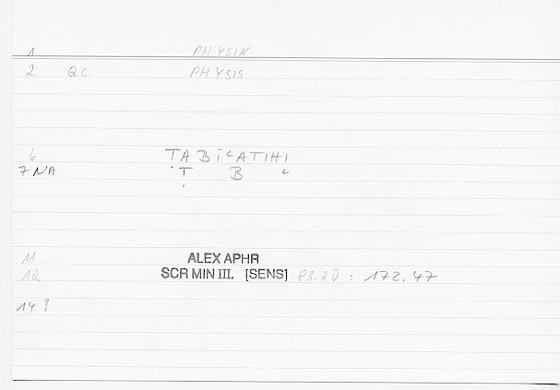 1 PHYSIN
2 QC PHYSIS
6 TABICATIHI
7 NA T B C
11 ALEX APHR
12 SCR MIN III. [SENS] 83.20 : 172.47
14 ?